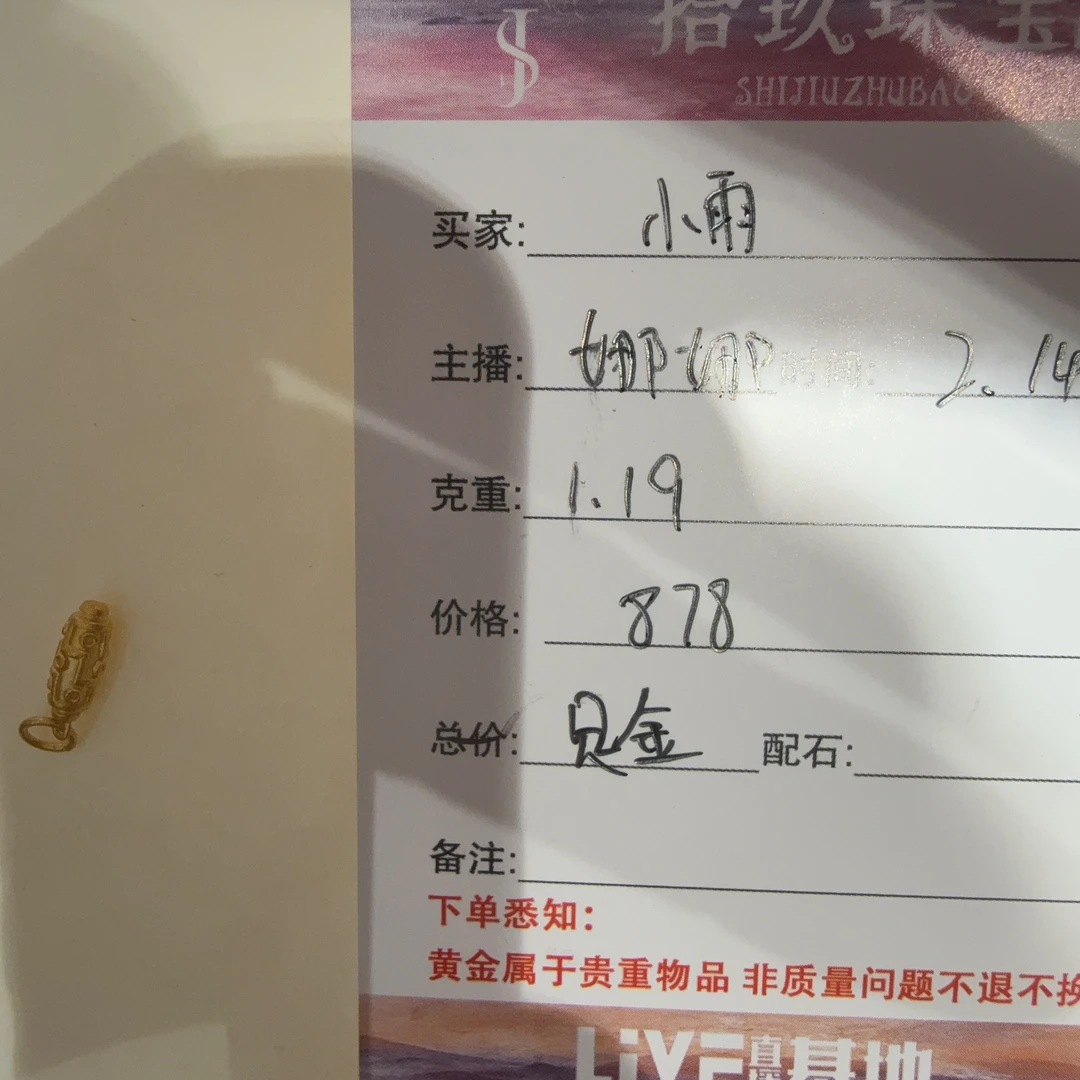 拾玖珠宝
SHIJIUZHUBAO
买家: 小雨
主播: 娜娜 时间: 2.14
克重: 1.19
价格: 878
总价: 见金 配石:
备注:
下单悉知：
黄金属于贵重物品 非质量问题不退不换
LiVE 基地